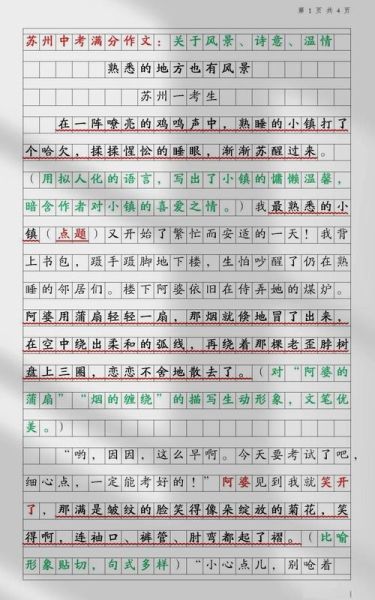 第 1 页 共 4 页
苏州中考满分作文：关于风景、诗意、温情
熟悉的地方也有风景
苏州一考生
在一阵嘹亮的鸡鸣声中，熟睡的小镇打了
个哈欠，揉揉惺忪的睡眼，渐渐苏醒过来。
（用拟人化的语言，写出了小镇的慵懒温馨，
暗含作者对小镇的喜爱之情。）我最熟悉的小
镇（点题）又开始了繁忙而安适的一天！我背
上书包，蹑手蹑脚地下楼，生怕吵醒了仍在熟
睡的邻居们。楼下阿婆依旧在侍弄她的煤炉。
阿婆用蒲扇轻轻一扇，那烟就倏地冒了出来，
在空中绕出柔和的弧线，再绕着那棵老歪脖树
盘上三圈，恋恋不舍地散去了。（对“阿婆的
蒲扇”“烟的缠绕”的描写生动形象，文笔优
美。）
“哟，囡囡，这么早啊。今天要考试了吧，
细心点，一定能考好的！”阿婆见到我就笑开
了，那满是皱纹的脸笑得像朵绽放的菊花，笑
得啊，连袖口、裤管、肘弯都起了褶。（比喻
形象贴切，句式多样）“小心点儿，别呛着